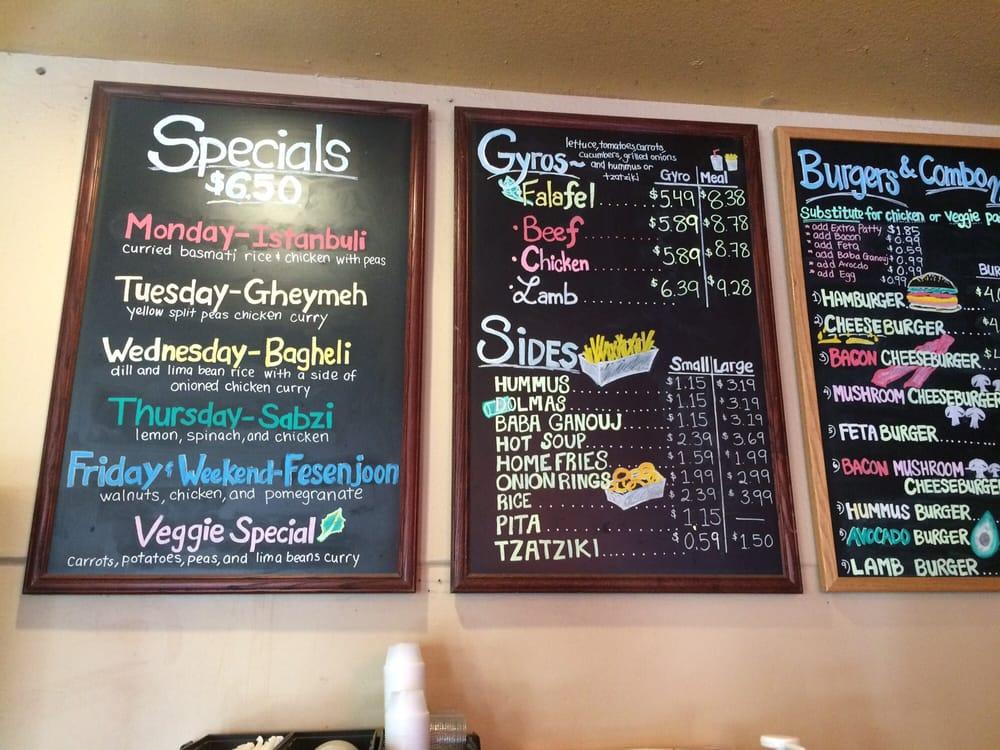 Specials
$6.50
Monday-Istanbuli
curried basmati rice & chicken with peas
Tuesday-Gheymeh
yellow split peas chicken curry
Wednesday-Bagheli
dill and lima bean rice with a side of
onioned chicken curry
Thursday-Sabzi
lemon, spinach, and chicken
Friday & Weekend-Fesenjoon
walnuts, chicken, and pomegranate
Veggie Special
carrots, potatoes, peas, and lima beans curry
Gyros~
lettuce, tomatoes, carrots,
cucumbers, grilled onions
and hummus or
tzatziki
Gyro Meal
Falafel...... $5.49 $8.38
·Beef......... $5.89 $8.78
·Chicken...... $5.89 $8.78
·Lamb......... $6.39 $9.28
SIDES
Small Large
HUMMUS........ $1.15 $3.19
DOLMAS........ $1.15 $3.19
BABA GANOUJ... $1.15 $3.19
HOT SOUP...... $2.39 $3.69
HOME FRIES.... $1.59 $1.99
ONION RINGS $1.99 $2.99
RICE $2.39 $3.99
PITA.......... $1.15 —
TZATZIKI...... $0.59 $1.50
Burgers & Combo
Substitute for chicken or veggie
* add Extra Patty $1.85
* add Bacon $0.99
* add Feta $0.59
* add Baba Ganouj $0.99
* add Avocdo $0.99
* add Egg $0.99
1) HAMBURGER....
2) CHEESEBURGER....
3) BACON CHEESEBURGER
4) MUSHROOM CHEESEBURGER
5) FETA BURGER......
6) BACON MUSHROOM
CHEESEBURGER
7) HUMMUS BURGER..
8) AVOCADO BURGER
9) LAMB BURGER...